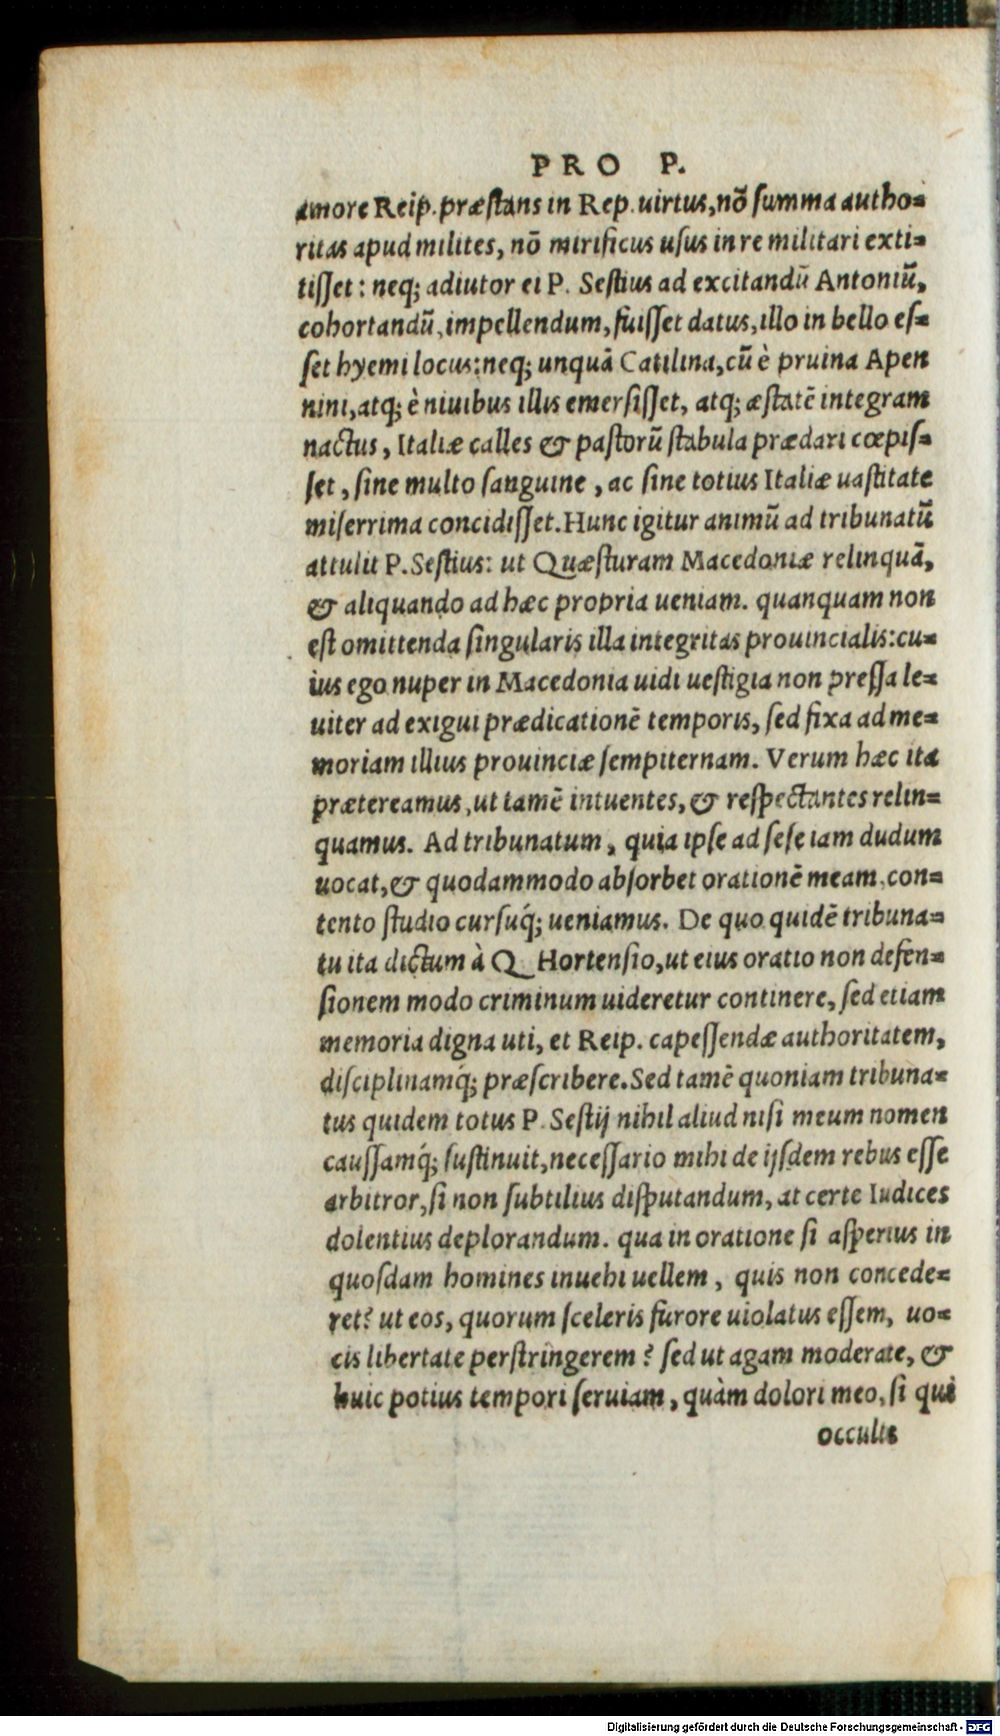 PRO P.
amore Reip. præſtans in Rep. uirtus, nõ ſumma autho-
ritas apud milites, nõ mirificus uſus in re militari exti-
tiſſet: neq; adiutor ei P. Seſtius ad excitandũ Antoniũ,
cohortandũ, impellendum, fuiſſet datus, illo in bello eſ-
ſet hyemi locus: neq; unquã Catilina, cũ è pruina Apen
nini, atq; è niuibus illis emerſiſſet, atq; æſtatẽ integram
nactus, Italiæ calles & paſtorũ ſtabula prædari cœpiſ-
ſet, ſine multo ſanguine, ac ſine totius Italiæ uaſtitate
miſerrima concidiſſet. Hunc igitur animũ ad tribunatũ
attulit P. Seſtius: ut Quæſturam Macedoniæ relinquã,
& aliquando ad hæc propria ueniam. quanquam non
eſt omittenda ſingularis illa integritas prouincialis: cu-
ius ego nuper in Macedonia uidi ueſtigia non preſſa le-
uiter ad exigui prædicationẽ temporis, ſed fixa ad me-
moriam illius prouinciæ ſempiternam. Verum hæc ita
prætereamus, ut tamẽ intuentes, & reſpectantes relin-
quamus. Ad tribunatum, quia ipſe ad ſeſe iam dudum
uocat, & quodammodo abſorbet orationẽ meam, con-
tento ſtudio curſuq́; ueniamus. De quo quidẽ tribuna-
tu ita dictum à Q Hortenſio, ut eius oratio non defen-
ſionem modo criminum uideretur continere, ſed etiam
memoria digna uti, et Reip. capeſſendæ authoritatem,
diſciplinamq́; præſcribere. Sed tamẽ quoniam tribuna-
tus quidem totus P. Seſtij nihil aliud niſi meum nomen
cauſſamq́; ſuſtinuit, neceſſario mihi de ijſdem rebus eſſe
arbitror, ſi non ſubtilius diſputandum, at certe Iudices
dolentius deplorandum. qua in oratione ſi aſperius in
quoſdam homines inuehi uellem, quis non concede-
ret? ut eos, quorum ſceleris furore uiolatus eſſem, uo-
cis libertate perſtringerem? ſed ut agam moderate, &
huic potius tempori ſeruiam, quàm dolori meo, ſi qui
occulte
Digitalisierung gefördert durch die Deutsche Forschungsgemeinschaft - DFG